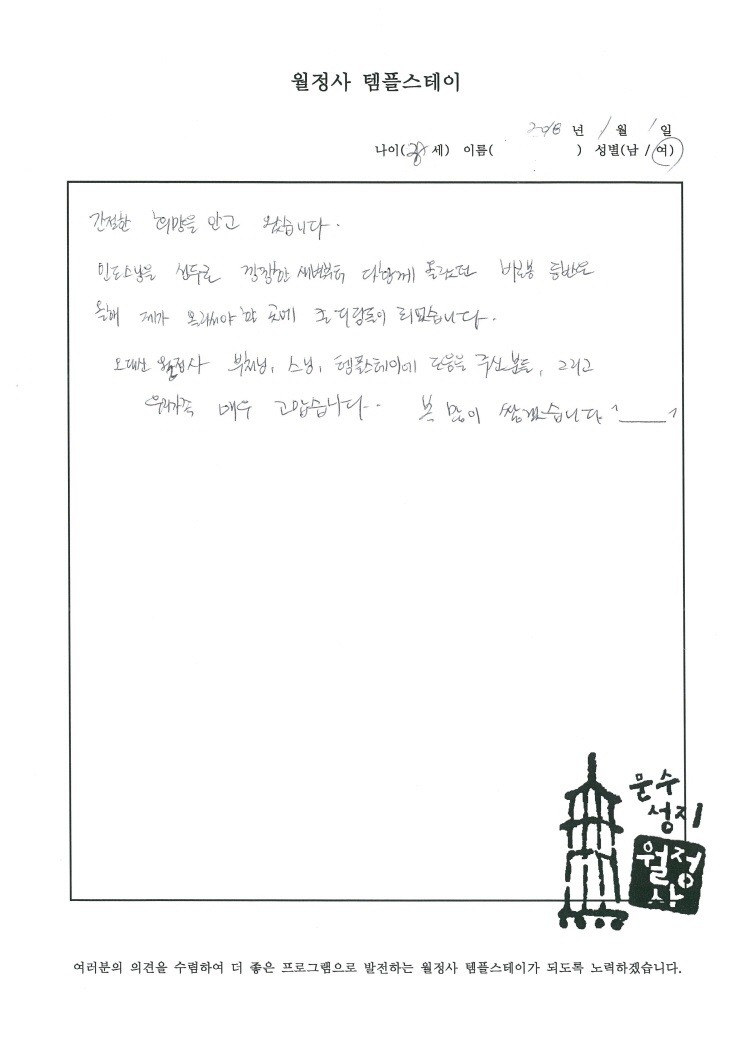 월정사 템플스테이
년 1월 1일
나이( 세) 이름( ) 성별(남 / 여)
간절한 희망을 안고 왔습니다.
인도스님을 선두로 깜깜한 새벽부터 다함께 올랐던 비로봉 등반은
올해 제가 올라서야 할 곳에 초 디딤돌이 되었습니다.
오대산 월정사 부처님, 스님, 템플스테이에 도움을 주신 분들, 그리고
우리가족 매우 고맙습니다.. 복 많이 쌓겠습니다 ^____^
문수
성지
월정
사
여러분의 의견을 수렴하여 더 좋은 프로그램으로 발전하는 월정사 템플스테이가 되도록 노력하겠습니다.